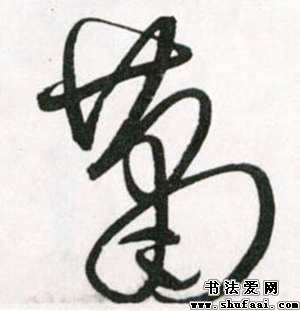 菊
书法爱网
www.shufaai.com